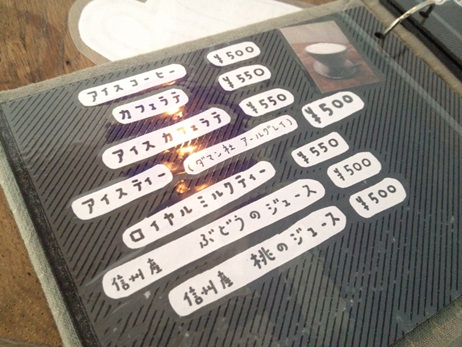 アイスコーヒー ¥500
カフェラテ ¥550
アイスカフェラテ ¥550
アイスティー (ダマン社 アールグレイ) ¥500
ロイヤルミルクティー ¥550
信州産 ぶどうのジュース ¥500
信州産 桃のジュース ¥500